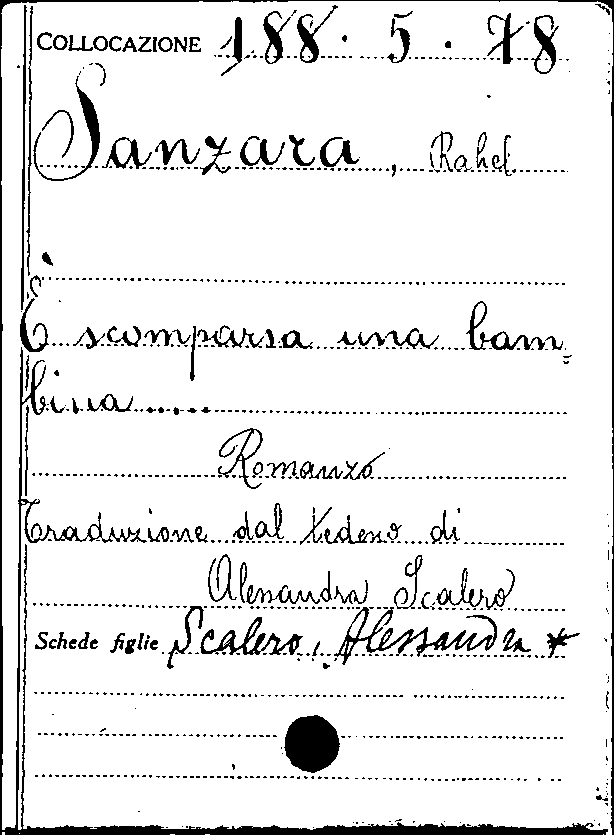 COLLOCAZIONE 188.5.78
Sanzara, Rahel
È scomparsa una bam=
bina.....
Romanzo
Traduzione dal tedesco di
Alessandra Scalero
Schede figlie Scalero, Alessandra *